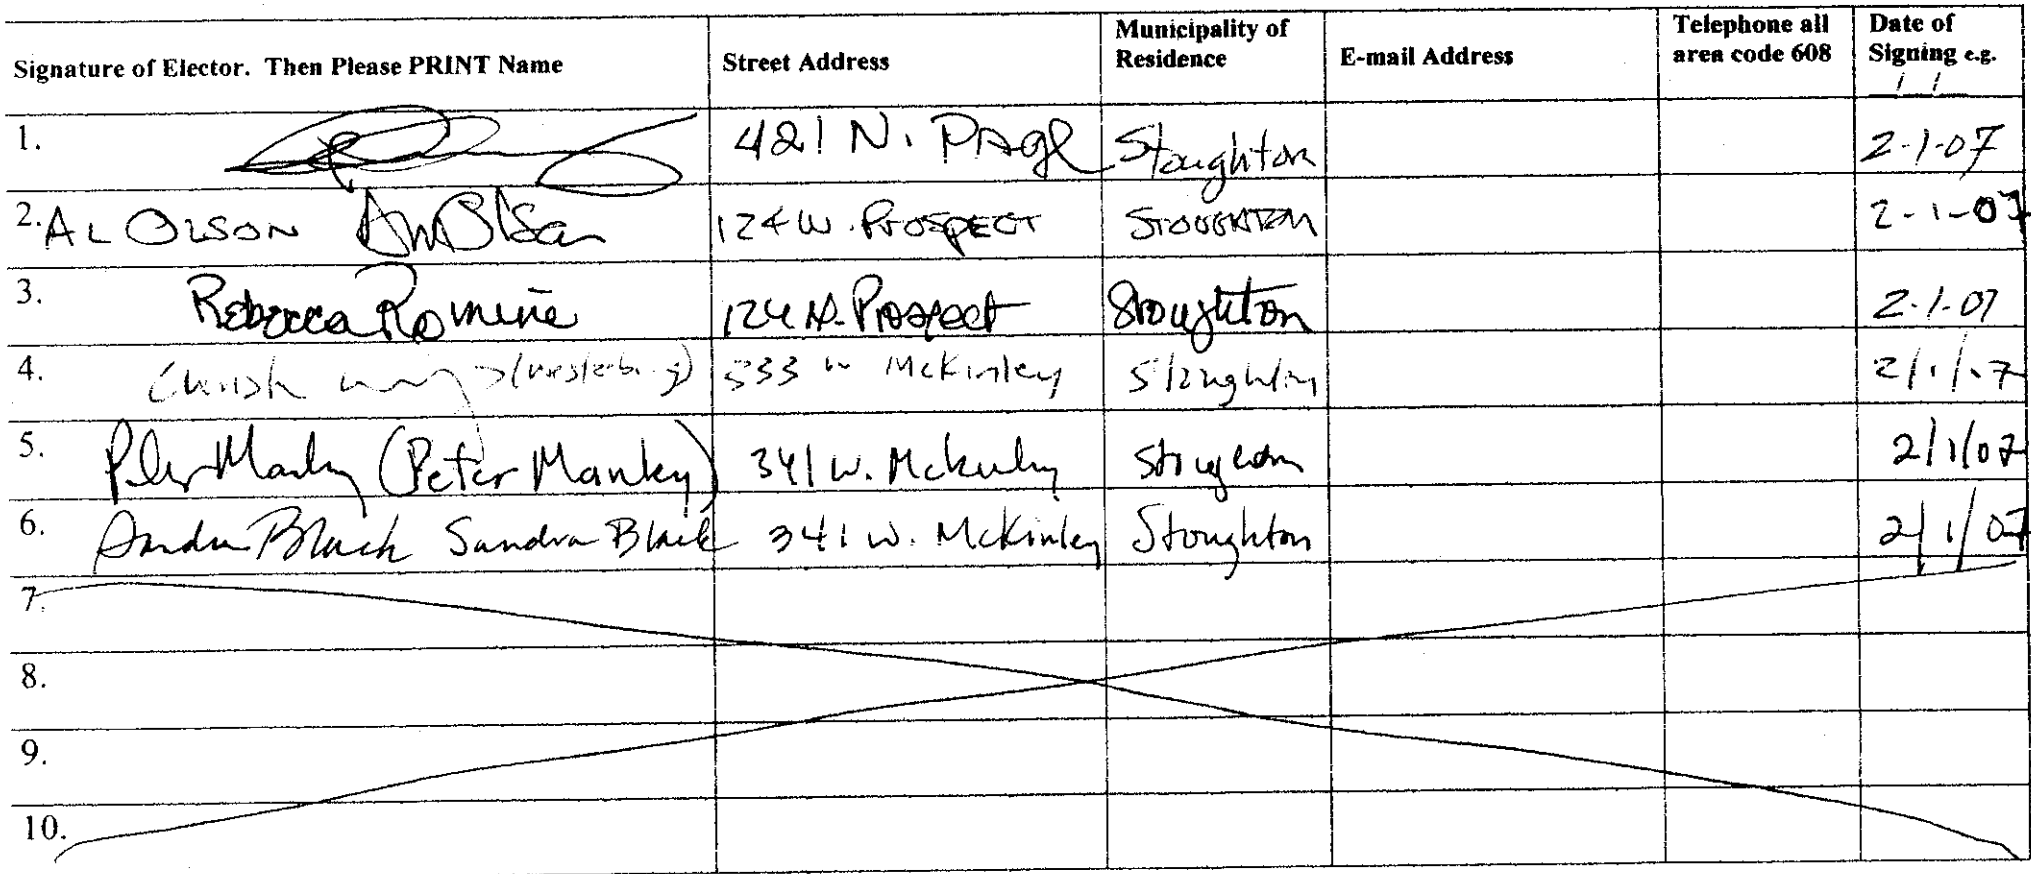 Signature of Elector. Then Please PRINT Name Street Address Municipality of Residence E-mail Address Telephone all area code 608 Date of Signing e.g. / /
1. 421 N. Page Stoughton 2-1-07
2. AL OLSON Al Olson 124 W. PROSPECT STOUGHTON 2-1-07
3. Rebecca Romine 124 W. Prospect Stoughton 2-1-07
4. 333 W McKinley Stoughton 2/1/07
5. Peter Manley (Peter Manley) 341 W. McKinley Stoughton 2/1/07
6. Sandra Black Sandra Black 341 W. McKinley Stoughton 2/1/07
7.
8.
9.
10.